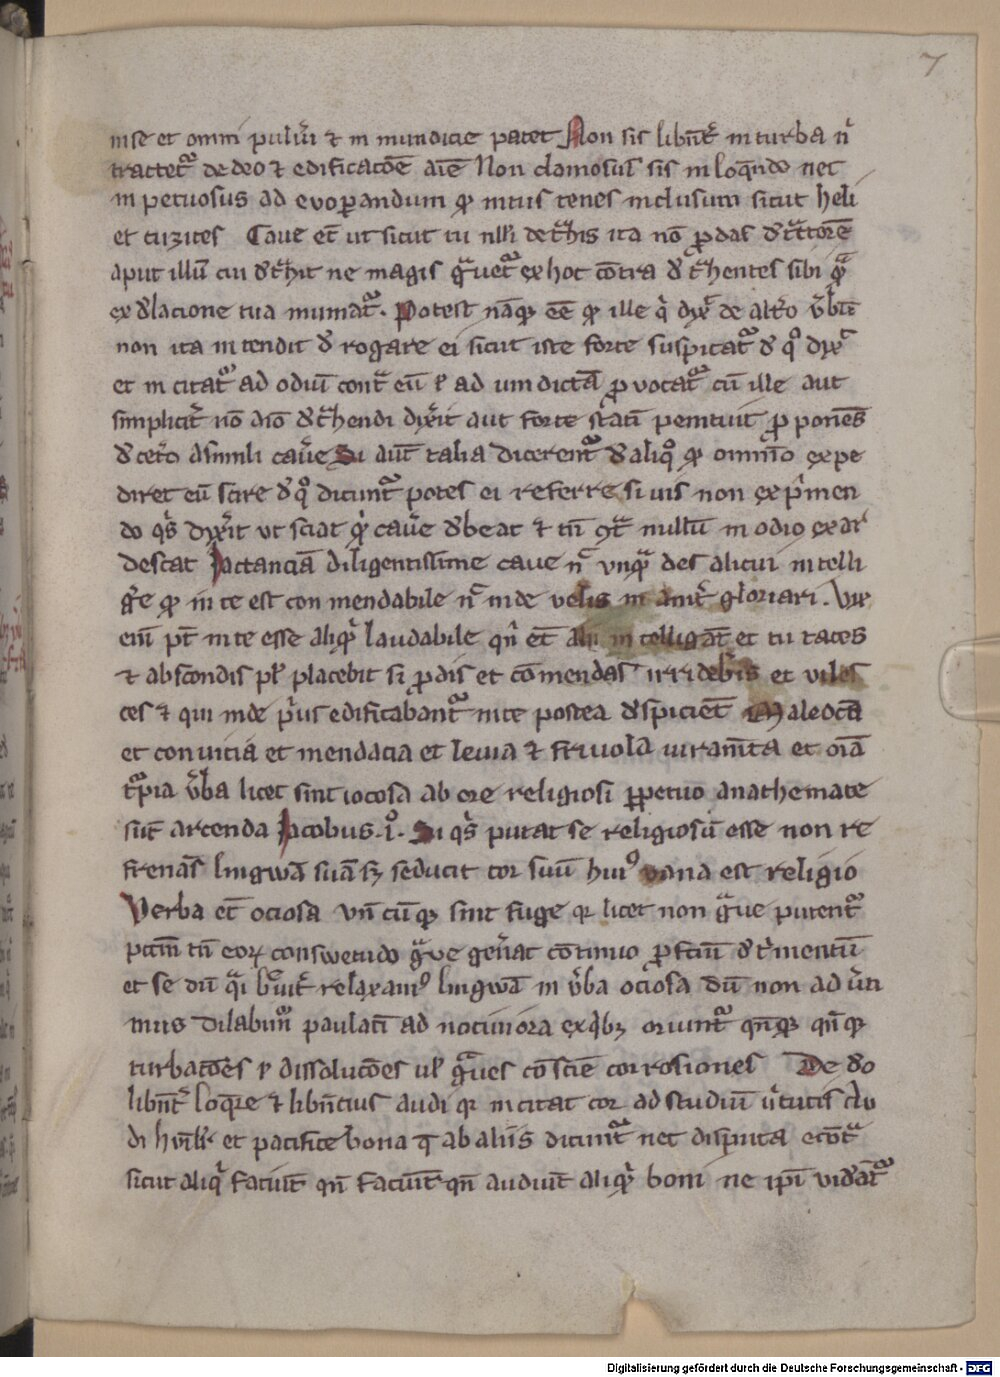 7
mse et omni puluͦi ⁊ in mundicie patet Non sis libnt͛ in turba nͥ
tractetᷣ de deo ⁊ edificacōē aīē Non clamosus sis in loqn̄do nec
in petuosus ad evoꝑandum qͥ intus tenes inclusum sicut heli
et turzites Caue et̄ ut sicut tu nll̓i det͛his ita nō ꝓdas d̓t͛ctorē
aput illū cui d̓t͛hit ne magis gͣuetᷣ ex hoc cōtra d̓t͛hentes sibi qͣ
ex d̓lacione tua inimatᷣ. Potest nāqꝫ eē qͥ ille qͥ dyx͛ de altͦo v̓bū
non ita intendit d̓rogare ei sicut iste forte suspicatᷣ d̓ qͦ dyx͛
et in citatᷣ ad odiū contͣ eū ł ad uindictā ꝓvocatᷣ cū ille aut
simplicit͛ nō aīo d̓t͛hendi dyx͛it aut forte statī penituit ꝓponēs
d̓ cet͛o a simili cav͛e Si aut̄ talia dicerentᷣ d̓ aliqͦ qͥ omnīo expe
diret eū scire d̓ qͦ dicuntᷣ potes ei referre si uis non exp̓men
do qͥs dyx͛it vt sciat qͥ cav͛e d̓beat ⁊ tn̄ 9tͣ nullū in odio exar
descat Jactanciā diligentissime caue nͥ vnqͣ des alicui intelli
g͛e qͥ in te est conmendabile nͥ inde velis in anit͛ gloriari. Vix
eni̅ pt̄ in te esse aliqͥ laudabile qn̄ et̄ alii intelligāt et tu taces
⁊ abscondis pl̓ placebit si ꝓdis et cōmendas irrideb͛is et viles
ces ⁊ qui inde p͛us edificabantᷣ in te postea d̓spiciēt Maledc̄a
et conuicia et mendacia et leuia ⁊ friuola iuram̄ta et oīā
t͛pia v̓ba licet sint iocosa ab ore religiosi ꝑpetuo anathemate
sūt arcenda Jacobus .iͦ. Si qͥs putat se religiosū esse non re
frenās lingwā suā sꝫ seducit cor suū huiꝰ vana est religio
Verba et̄ ociosa vn̄ cū qꝫ sint fuge qꝛ licet non gͣue putentᷣ
pcc̄m tn̄ eoꝝ conswetudo gͣve gen͛at cōtinuo ꝓfc̄tuū d̓t͛mentū
et se dū qͣi bͦuit͛ relaxamꝰ lingwā in v̓ba ociosa dū non adu͛ti
mus dilabimᷣ paulatī ad nociuiora ex qͥbꝫ oriuntᷣ qn̄qꝫ qn̄qꝫ
turbacōēs ł dissolucōēs ul̓ gͣues cōsciē corrosiones De do
libnt͛ loqͥre ⁊ libn̄cius audi qꝛ incitat cor ad studiū v͛tutis
di huīl͛r et pacifice bona q ab aliis dicuntᷣ nec disputa ecōtͣ
sicut aliqͥ faciūt qn̄ faciūt qn̄ audiūt aliqͥ boni ne ip̄i vid͛atᷣ
Digitalisierung gefördert durch die Deutsche Forschungsgemeinschaft - DFG